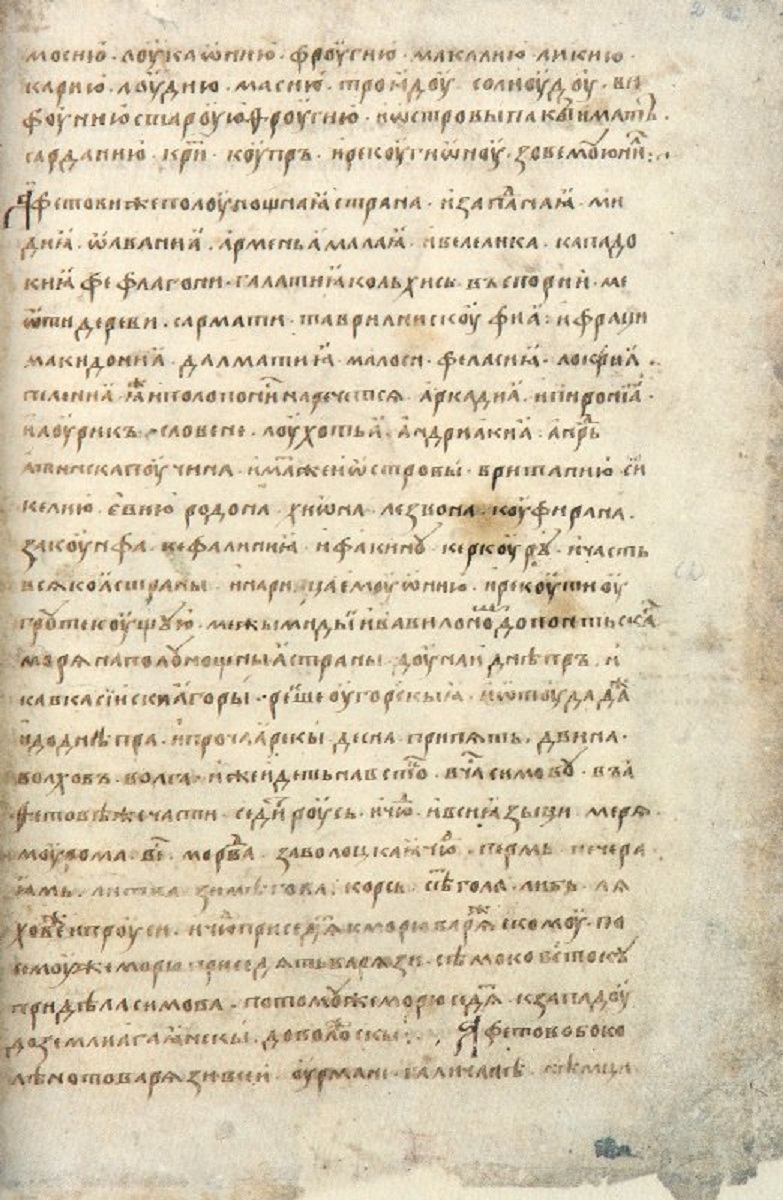 мосию · лоукаѡнию · фроугию · макалию ликию ·
карию · лоудию · масию · троидоу · солиоудоу · ви
фоунию староую фроугию · и ѡстровы пакы имать ·
сарданию · крит · коупръ · и рекоу гиѡноу · зовемоую нил ·
Ꙗфетови же полоунощнаꙗ страна · и западнаꙗ · ми
диꙗ · ѡлваниꙗ · арменьꙗ малаꙗ · и велелика · кападо
киꙗ фефлагони · галатиꙗ кольхись · въспории · ме
ѡти дереви · сармати · тавриании скоуфиꙗ · и фраци
макидониꙗ · далматиꙗ · малоси · феласиꙗ · локриꙗ ·
пелениꙗ ꙗже и полопонии наречетсѧ аркадиꙗ · ипирониꙗ ·
илоурикъ · словене · лоухотьꙗ · андриакиꙗ · андрь
атиньска поучина · имать же и ѡстровы · вританию · си
келию · евию родона · хиѡна · лезвона · коуфирана ·
закоуньфа · кефалиниꙗ · ифакину · керкоуру · и часть
всѧкоꙗ страны · и нарицаемоую ѡнию · и рекоу тигроу
текоущую · межы миды и вавилономь до поньтьскаго
морѧ на полунощныꙗ страны доунаи днѣпръ · и
кавкасииския горы · рекше оугорьскыꙗ · и ѿтоуда даже
и до днѣпра · и прочаꙗ рекы десна припѧть · двина ·
волховъ · волга · иже идеть на въстокъ в часть симову · въ ꙗ
фетовѣ же части седить роусь · и чюдь · и вси ꙗзыци · мерѧ ·
моурома · весь · морва · заволоцкаꙗ чюдь · пермь · печера
ꙗмь · зимѣгола · корсь · сѣтгола · либь · лѧ
ховѣ и проуси · и чюдь приседѧть к морю варѧскомоу · по
семоу же морю приседѧть варѧзи · сѣмо к въстоку
до придѣла симова · по тому же морю седѧть к западоу
до земли агаѧньскы · до волошскы · Ꙗфетово бо ко
лѣно то варѧзи свеи · оурмани · галичанѣ · нѣмци